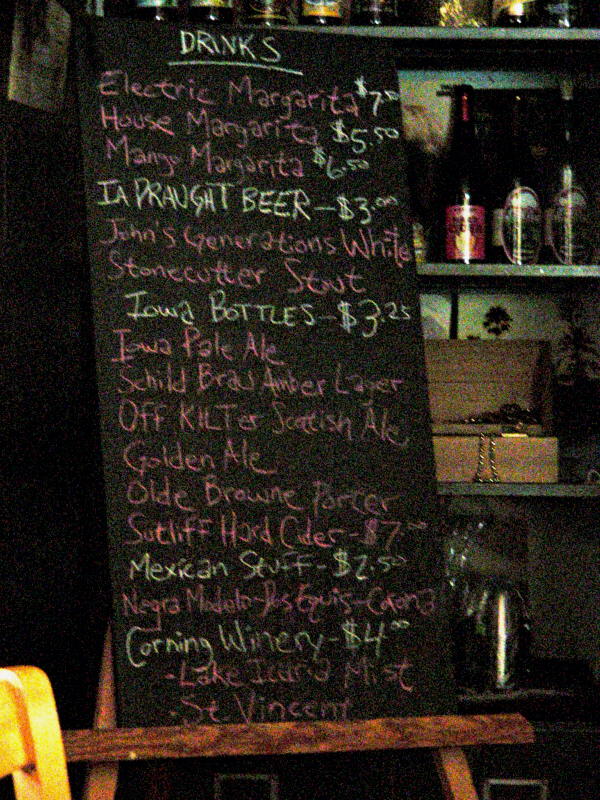 DRINKS
Electric Margarita $7.00
House Margarita $5.50
Mango Margarita $6.50
IA DRAUGHT BEER - $3.00
John's Generations White
Stonecutter Stout
Iowa BOTTLES - $3.25
Iowa Pale Ale
Schild Brau Amber Lager
OFF KILTer Scottish Ale
Golden Ale
Olde Browne Porter
Sutliff Hard Cider - $7.00
Mexican Stuff - $2.50
Negra Modolo - Dos Equis - Corona
Corning Winery - $4.00
- Lake Icaria Mist
- St. Vincent